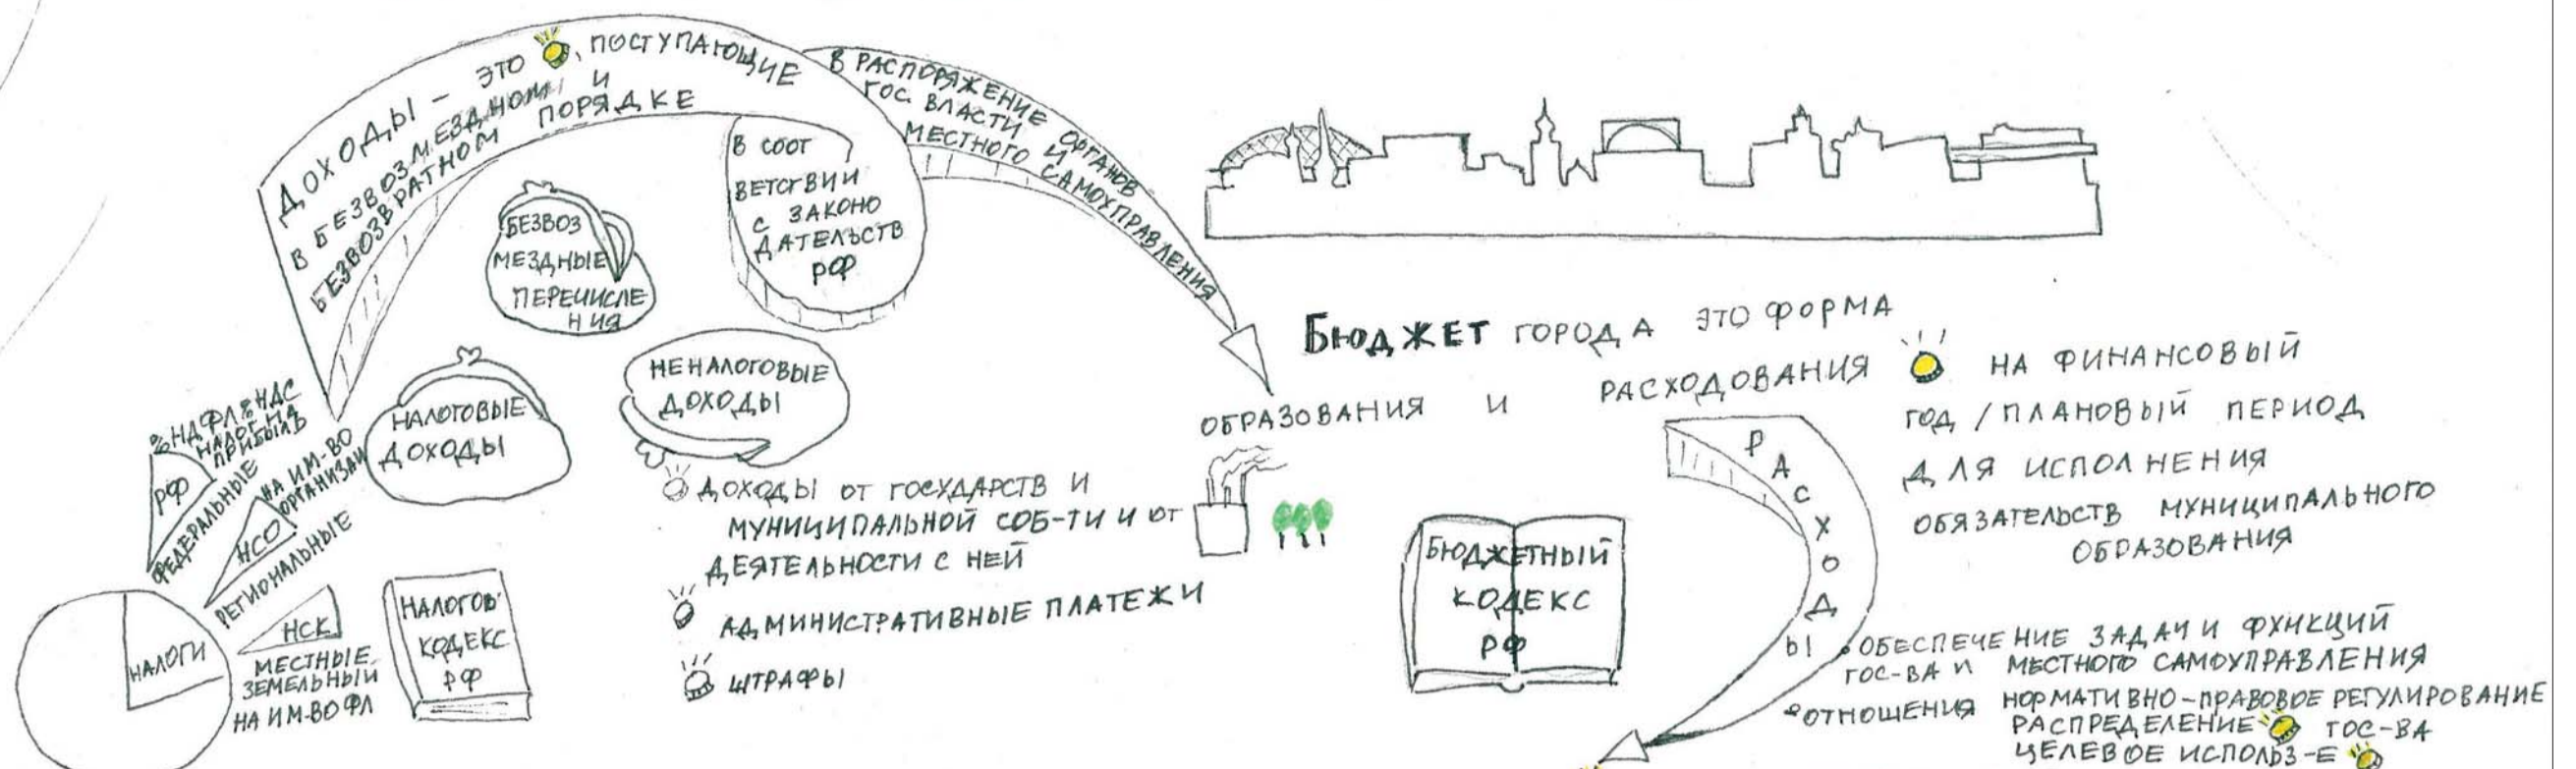 ДОХОДЫ - ЭТО , ПОСТУПАЮЩИЕ
В БЕЗВОЗМЕЗДНОМ И
БЕЗВОЗВРАТНОМ ПОРЯДКЕ
В СООТ
ВЕТСТВИИ
С ЗАКОНО
ДАТЕЛЬСТВ
РФ
В РАСПОРЯЖЕНИЕ ОРГАНОВ
ГОС. ВЛАСТИ И
МЕСТНОГО САМОУПРАВЛЕНИЯ
БЕЗВОЗ
МЕЗДНЫЕ
ПЕРЕЧИСЛЕ
НИЯ
НАЛОГОВЫЕ
ДОХОДЫ
НЕНАЛОГОВЫЕ
ДОХОДЫ
% НДФЛ % НДС
НАЛОГ НА
ПРИБЫЛЬ
РФ
ФЕДЕРАЛЬНЫЕ
НА ИМ-ВО
ОРГАНИЗАЦ
НСО
РЕГИОНАЛЬНЫЕ
НСК
МЕСТНЫЕ
ЗЕМЕЛЬНЫЙ
НА ИМ-ВО ФЛ
НАЛОГИ
НАЛОГОВ
КОДЕКС
РФ
ДОХОДЫ ОТ ГОСУДАРСТВ И
МУНИЦИПАЛЬНОЙ СОБ-ТИ И ОТ
ДЕЯТЕЛЬНОСТИ С НЕЙ
АДМИНИСТРАТИВНЫЕ ПЛАТЕЖИ
ШТРАФЫ
БЮДЖЕТ ГОРОДА ЭТО ФОРМА
ОБРАЗОВАНИЯ И РАСХОДОВАНИЯ НА ФИНАНСОВЫЙ
ГОД / ПЛАНОВЫЙ ПЕРИОД
ДЛЯ ИСПОЛНЕНИЯ
ОБЯЗАТЕЛЬСТВ МУНИЦИПАЛЬНОГО
ОБРАЗОВАНИЯ
БЮДЖЕТНЫЙ
КОДЕКС
РФ
РАСХОДЫ
ОБЕСПЕЧЕНИЕ ЗАДАЧ И ФУНКЦИЙ
ГОС-ВА И МЕСТНОГО САМОУПРАВЛЕНИЯ
ОТНОШЕНИЯ НОРМАТИВНО-ПРАВОВОЕ РЕГУЛИРОВАНИЕ
РАСПРЕДЕЛЕНИЕ ГОС-ВА
ЦЕЛЕВОЕ ИСПОЛЬЗ-Е